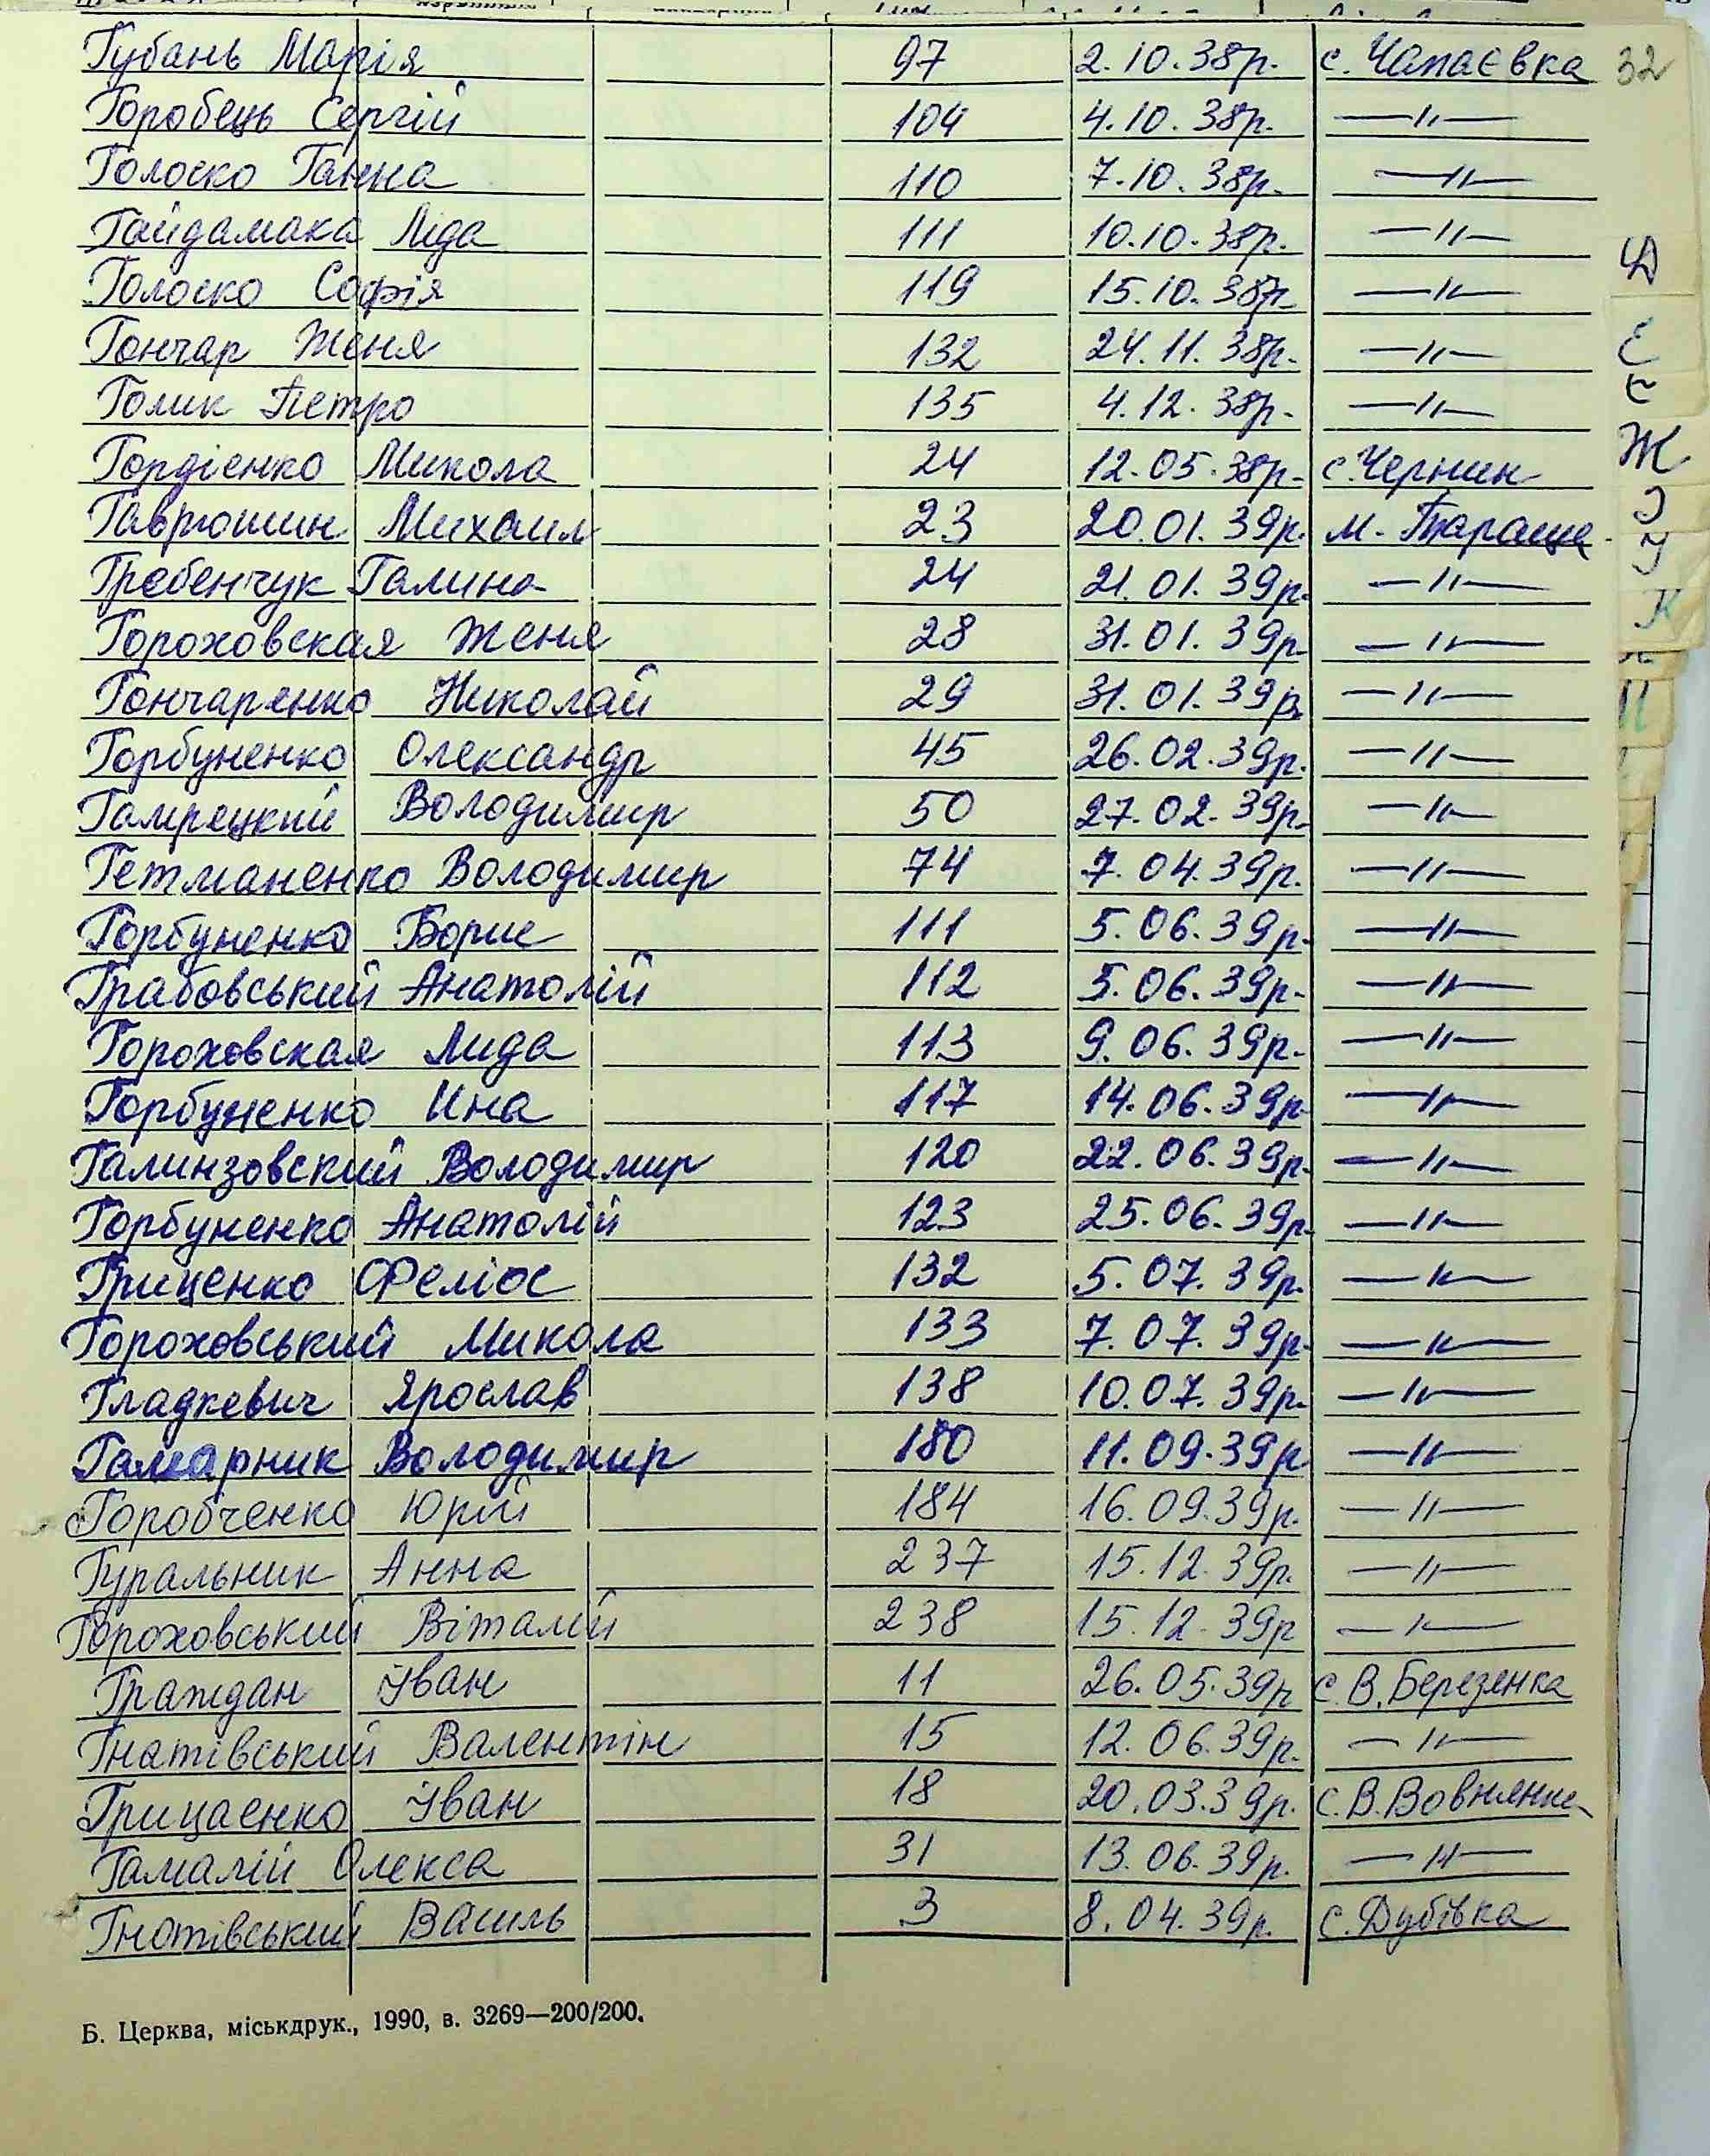 Губань Марія 97 2.10.38р. с. Чапаєвка 32
Горобець Сергій 104 4.10.38р. —〃—
Голоско Ганна 110 7.10.38р. —〃—
Гайдамака Ліда 111 10.10.38р. —〃—
Голоско Софія 119 15.10.38р. —〃—
Гончар Женя 132 24.11.38р. —〃—
Голик Петро 135 4.12.38р. —〃—
Гордієнко Микола 24 12.05.38р. с. Чернин
Гаврюшин Михаил 23 20.01.39р. м. Тараща
Гребенчук Галина 24 21.01.39р. —〃—
Гороховская Женя 28 31.01.39р. —〃—
Гончаренко Николай 29 31.01.39р. —〃—
Горбуненко Олександр 45 26.02.39р. —〃—
Гамрецкий Володимир 50 27.02.39р. —〃—
Гетманенко Володимир 74 7.04.39р. —〃—
Горбуненко Борис 111 5.06.39р. —〃—
Грабовський Анатолій 112 5.06.39р. —〃—
Гороховская Лида 113 9.06.39р. —〃—
Горбуненко Ина 117 14.06.39р. —〃—
Галинзовский Володимир 120 22.06.39р. —〃—
Горбуненко Анатолій 123 25.06.39р. —〃—
Гриценко Феліос 132 5.07.39р. —〃—
Гороховський Микола 133 7.07.39р. —〃—
Гладкевич Ярослав 138 10.07.39р. —〃—
Гамарник Володимир 180 11.09.39р —〃—
Горобченко Юрій 184 16.09.39р. —〃—
Гуральник Анна 237 15.12.39р. —〃—
Гороховський Віталій 238 15.12.39р —〃—
Граждан Іван 11 26.05.39р с. В. Березянка
Гнатівський Валентін 15 12.06.39р. —〃—
Грицаенко Іван 18 20.03.39р. с. В. Вовнянка
Гамалій Олекса 31 13.06.39р. —〃—
Гнатівський Василь 3 8.04.39р. с. Дубівка
Б. Церква, міськдрук., 1990, в. 3269—200/200.
Д
Е
Є
Ж
З
І
К